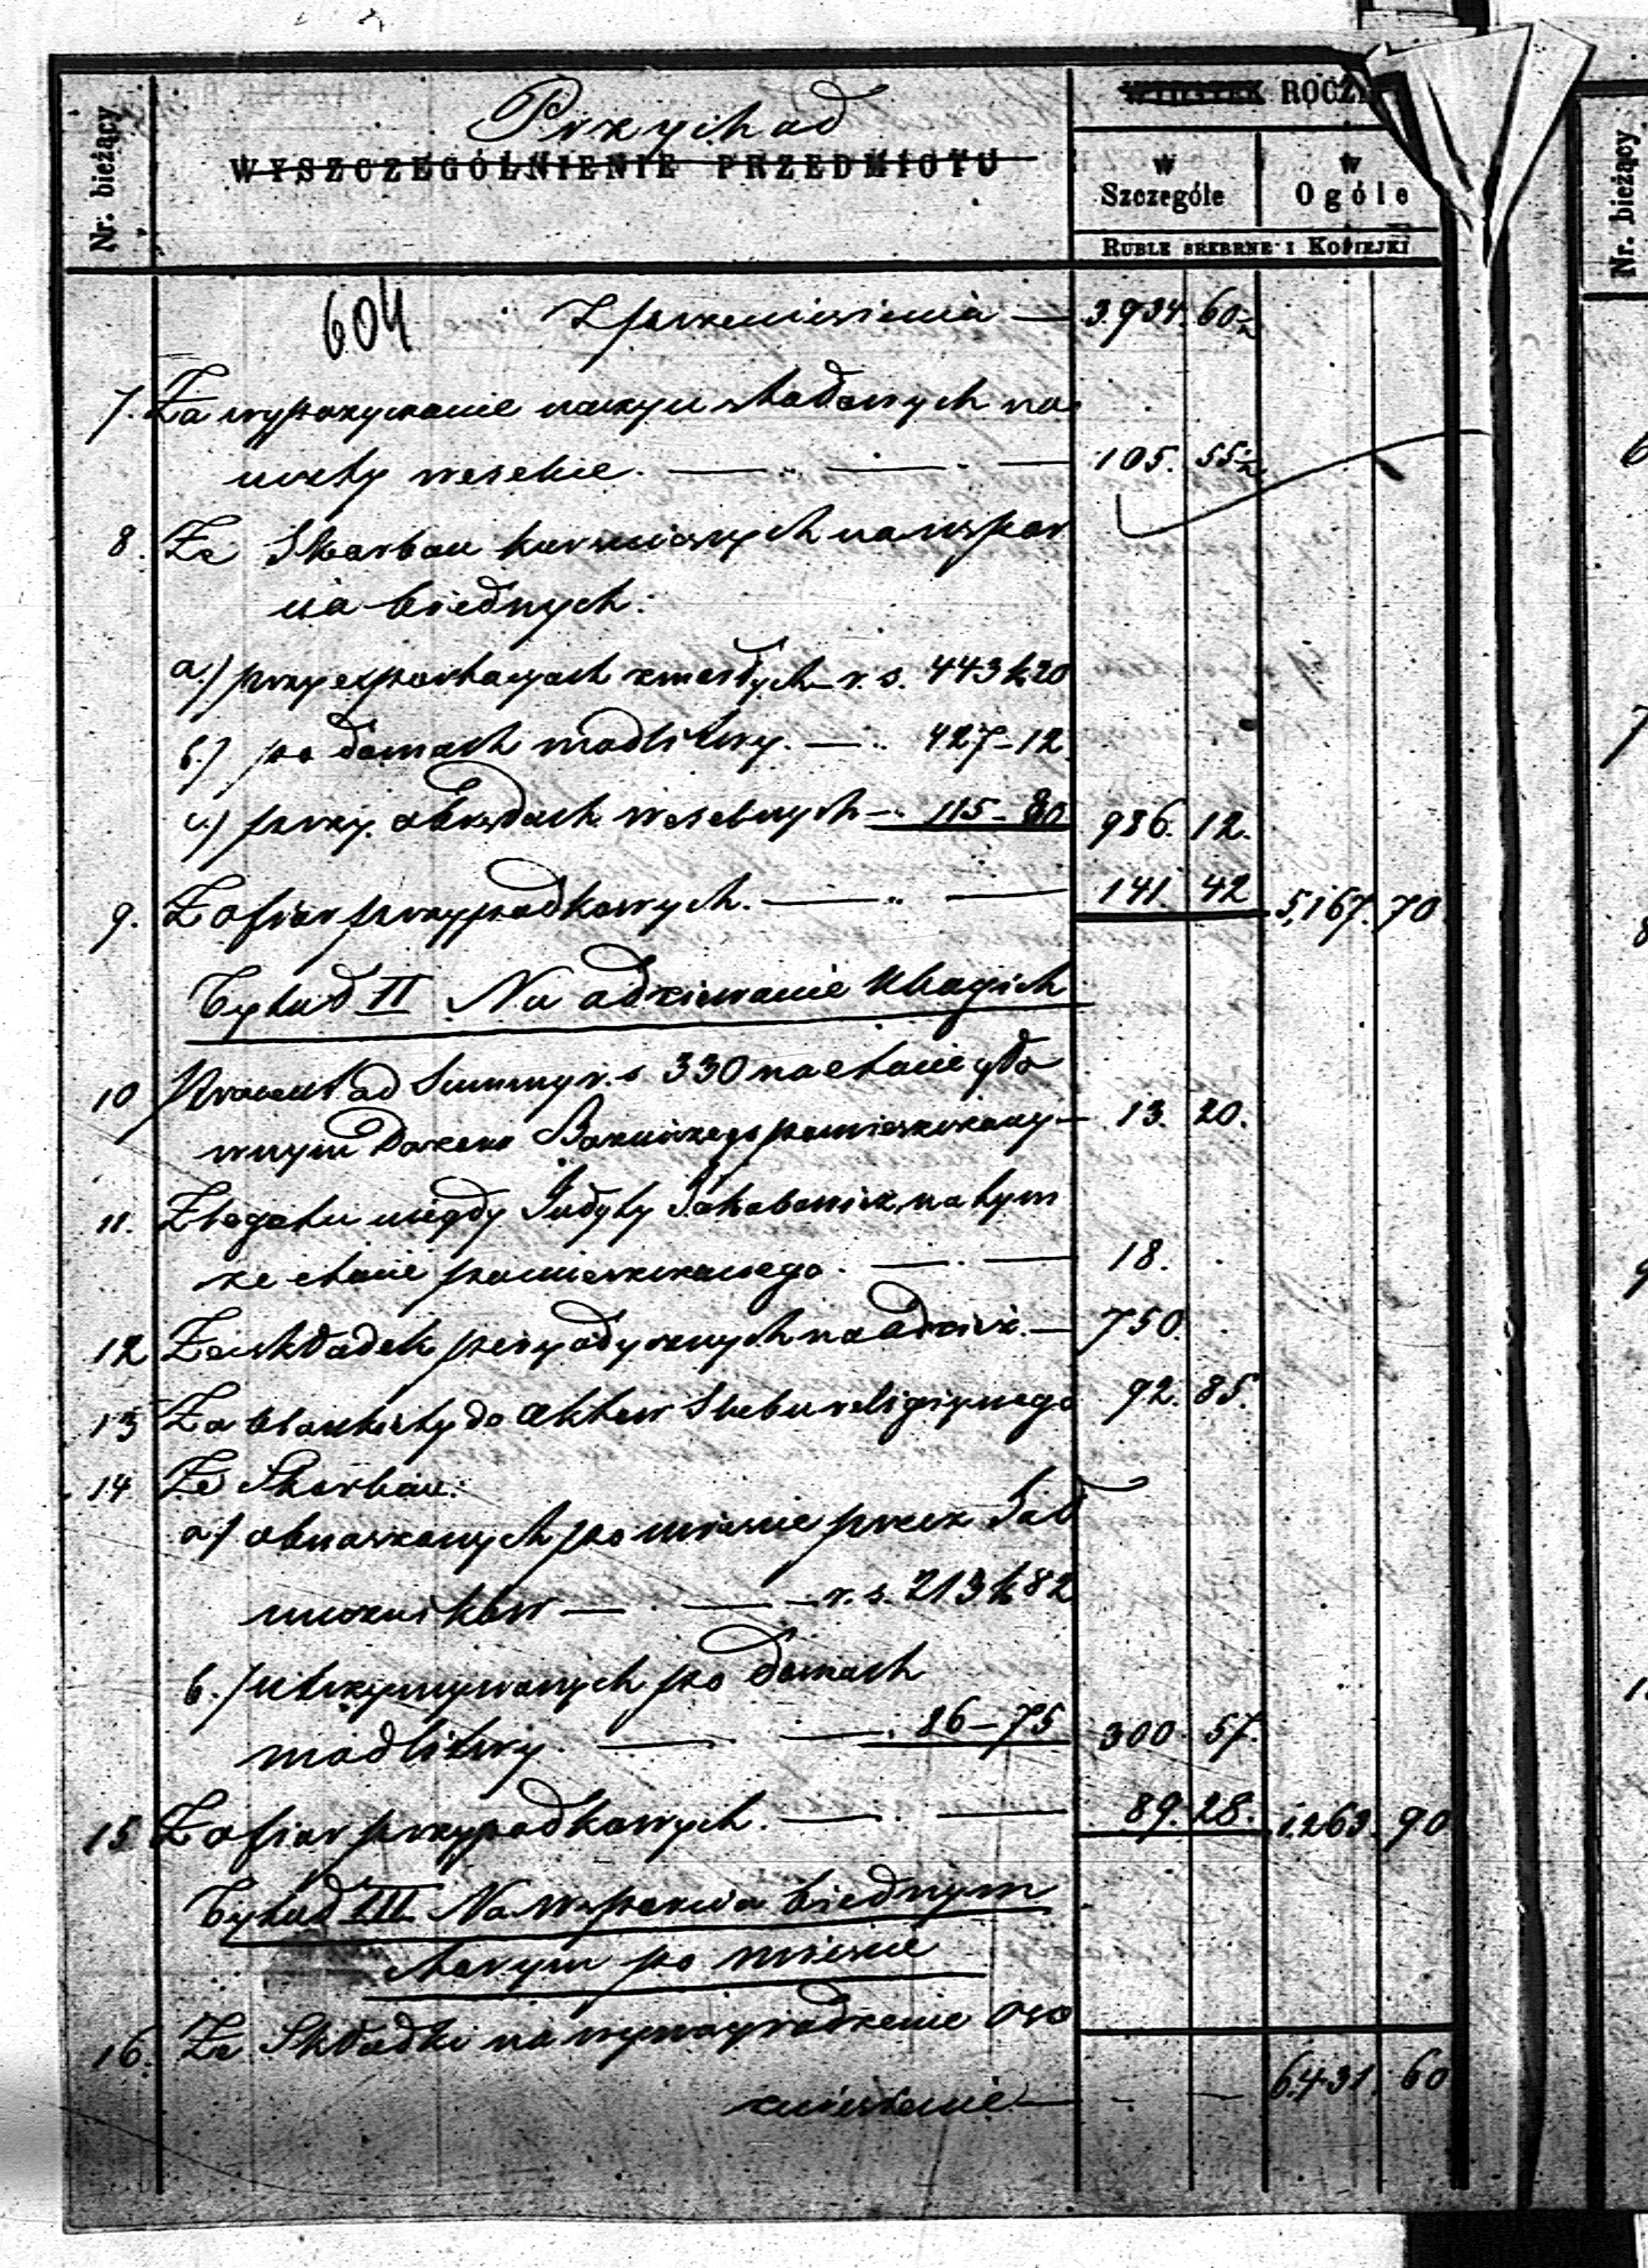 Nr. bieżący
Przychod
WYSZCZEGÓLNIENIE PRZEDMIOTU
WYDATEK ROCZ
w Szczególe
w Ogóle
RUBLE SREBRNE I KOPIEJKI
604 Z przeniesienia — 3.934. 60½
7. Za wypożyczanie naczyń stołowych na
uczty weselne. — 105. 55½
8. Ze Skarbon karmiowych na wspar
cia biednych:
a.) przy exportacyach zmarłych r. s. 443 k 20
b.) po domach modlitwy. — 427 – 12
c.) przy obrzędach weselnych — 115 – 80 986. 12.
9. Z ofiar przypadkowych. — 141. 42 5,167. 70
Tytuł II Na odziewanie Ubogich
10 Procent od Summy r. s. 330 na etacie głó
wnym Dozoru Bożniczego pomieszczony — 13. 20.
11. Z legatu niegdy Judyty Jakubowicz, na tym
że etacie pomieszczonego. — 18. .
12 Ze składek peryodycznych na odzież. — 750. .
13 Za blankiety do aktów Ślubu religijnego 92. 85.
14 Ze Skarbon:
a) obnoszonych po mieście przez Jał
mużników — r. s. 213 k 82
b.) utrzymywanych po domach
modlitwy. — 86 – 75 300. 57.
15 Z ofiar przypadkowych. — 89. 28. 1,263. 90
Tytuł III Na Wsparcia biednym
chorym po mieście
16. Ze Składki na wynagrodzenie
zniesienie — 6,431. 60
Nr. bieżący